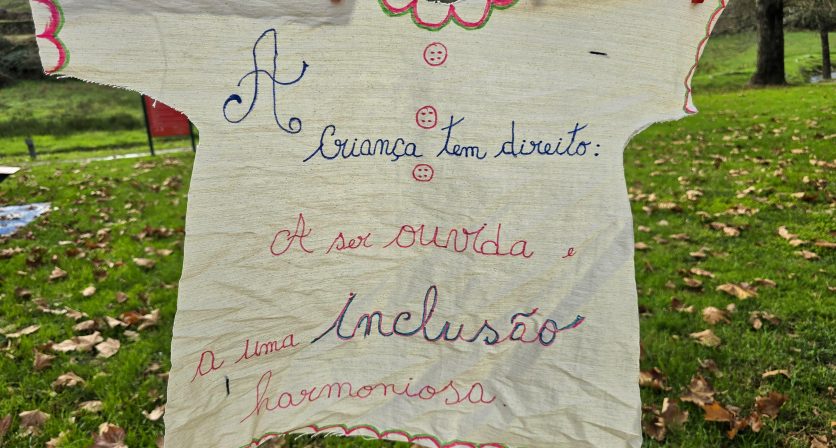 A
Criança tem direito:
A ser ouvida e
a uma inclusão
harmoniosa.